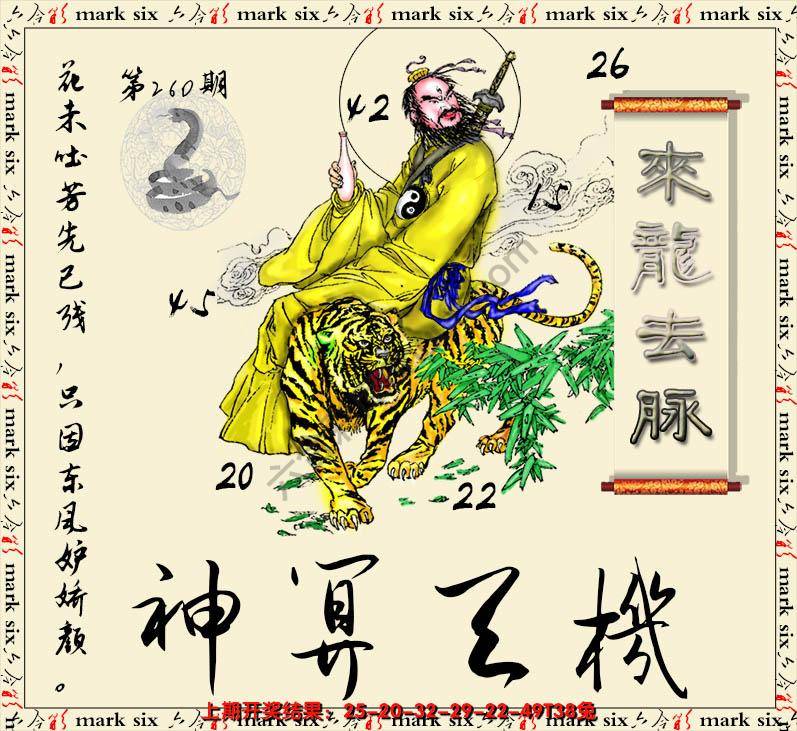 mark six 六合彩 mark six 六合彩 mark six 六合彩 mark six 六合彩 mark six
第260期
花未吐芳先已残，只因东风妒娇颜。
42
26
15
45
20
22
來龍去脉
神算天機
上期开奖结果：25-20-32-29-22-49T38兔